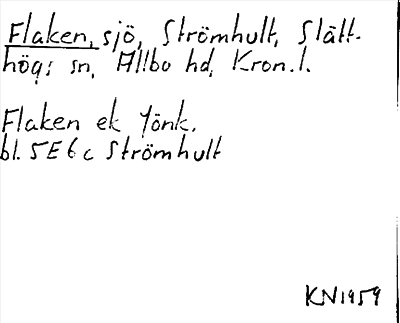 Flaken, sjö, Strömhult, Slätt-
högs sn, Allbo hd, Kron.l.
Flaken ek Jönk.
bl. 5E 6c Strömhult
KN1959